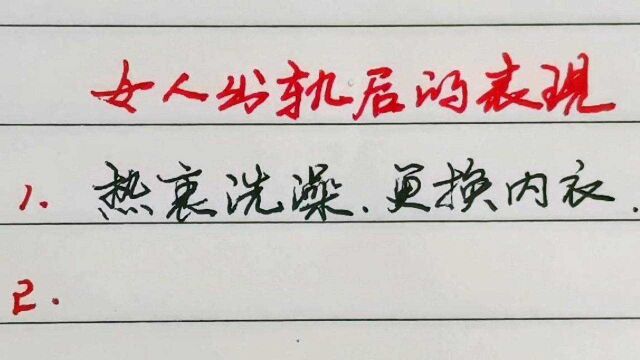 女人出轨后的表现
1. 热衷洗澡、更换内衣.
2.